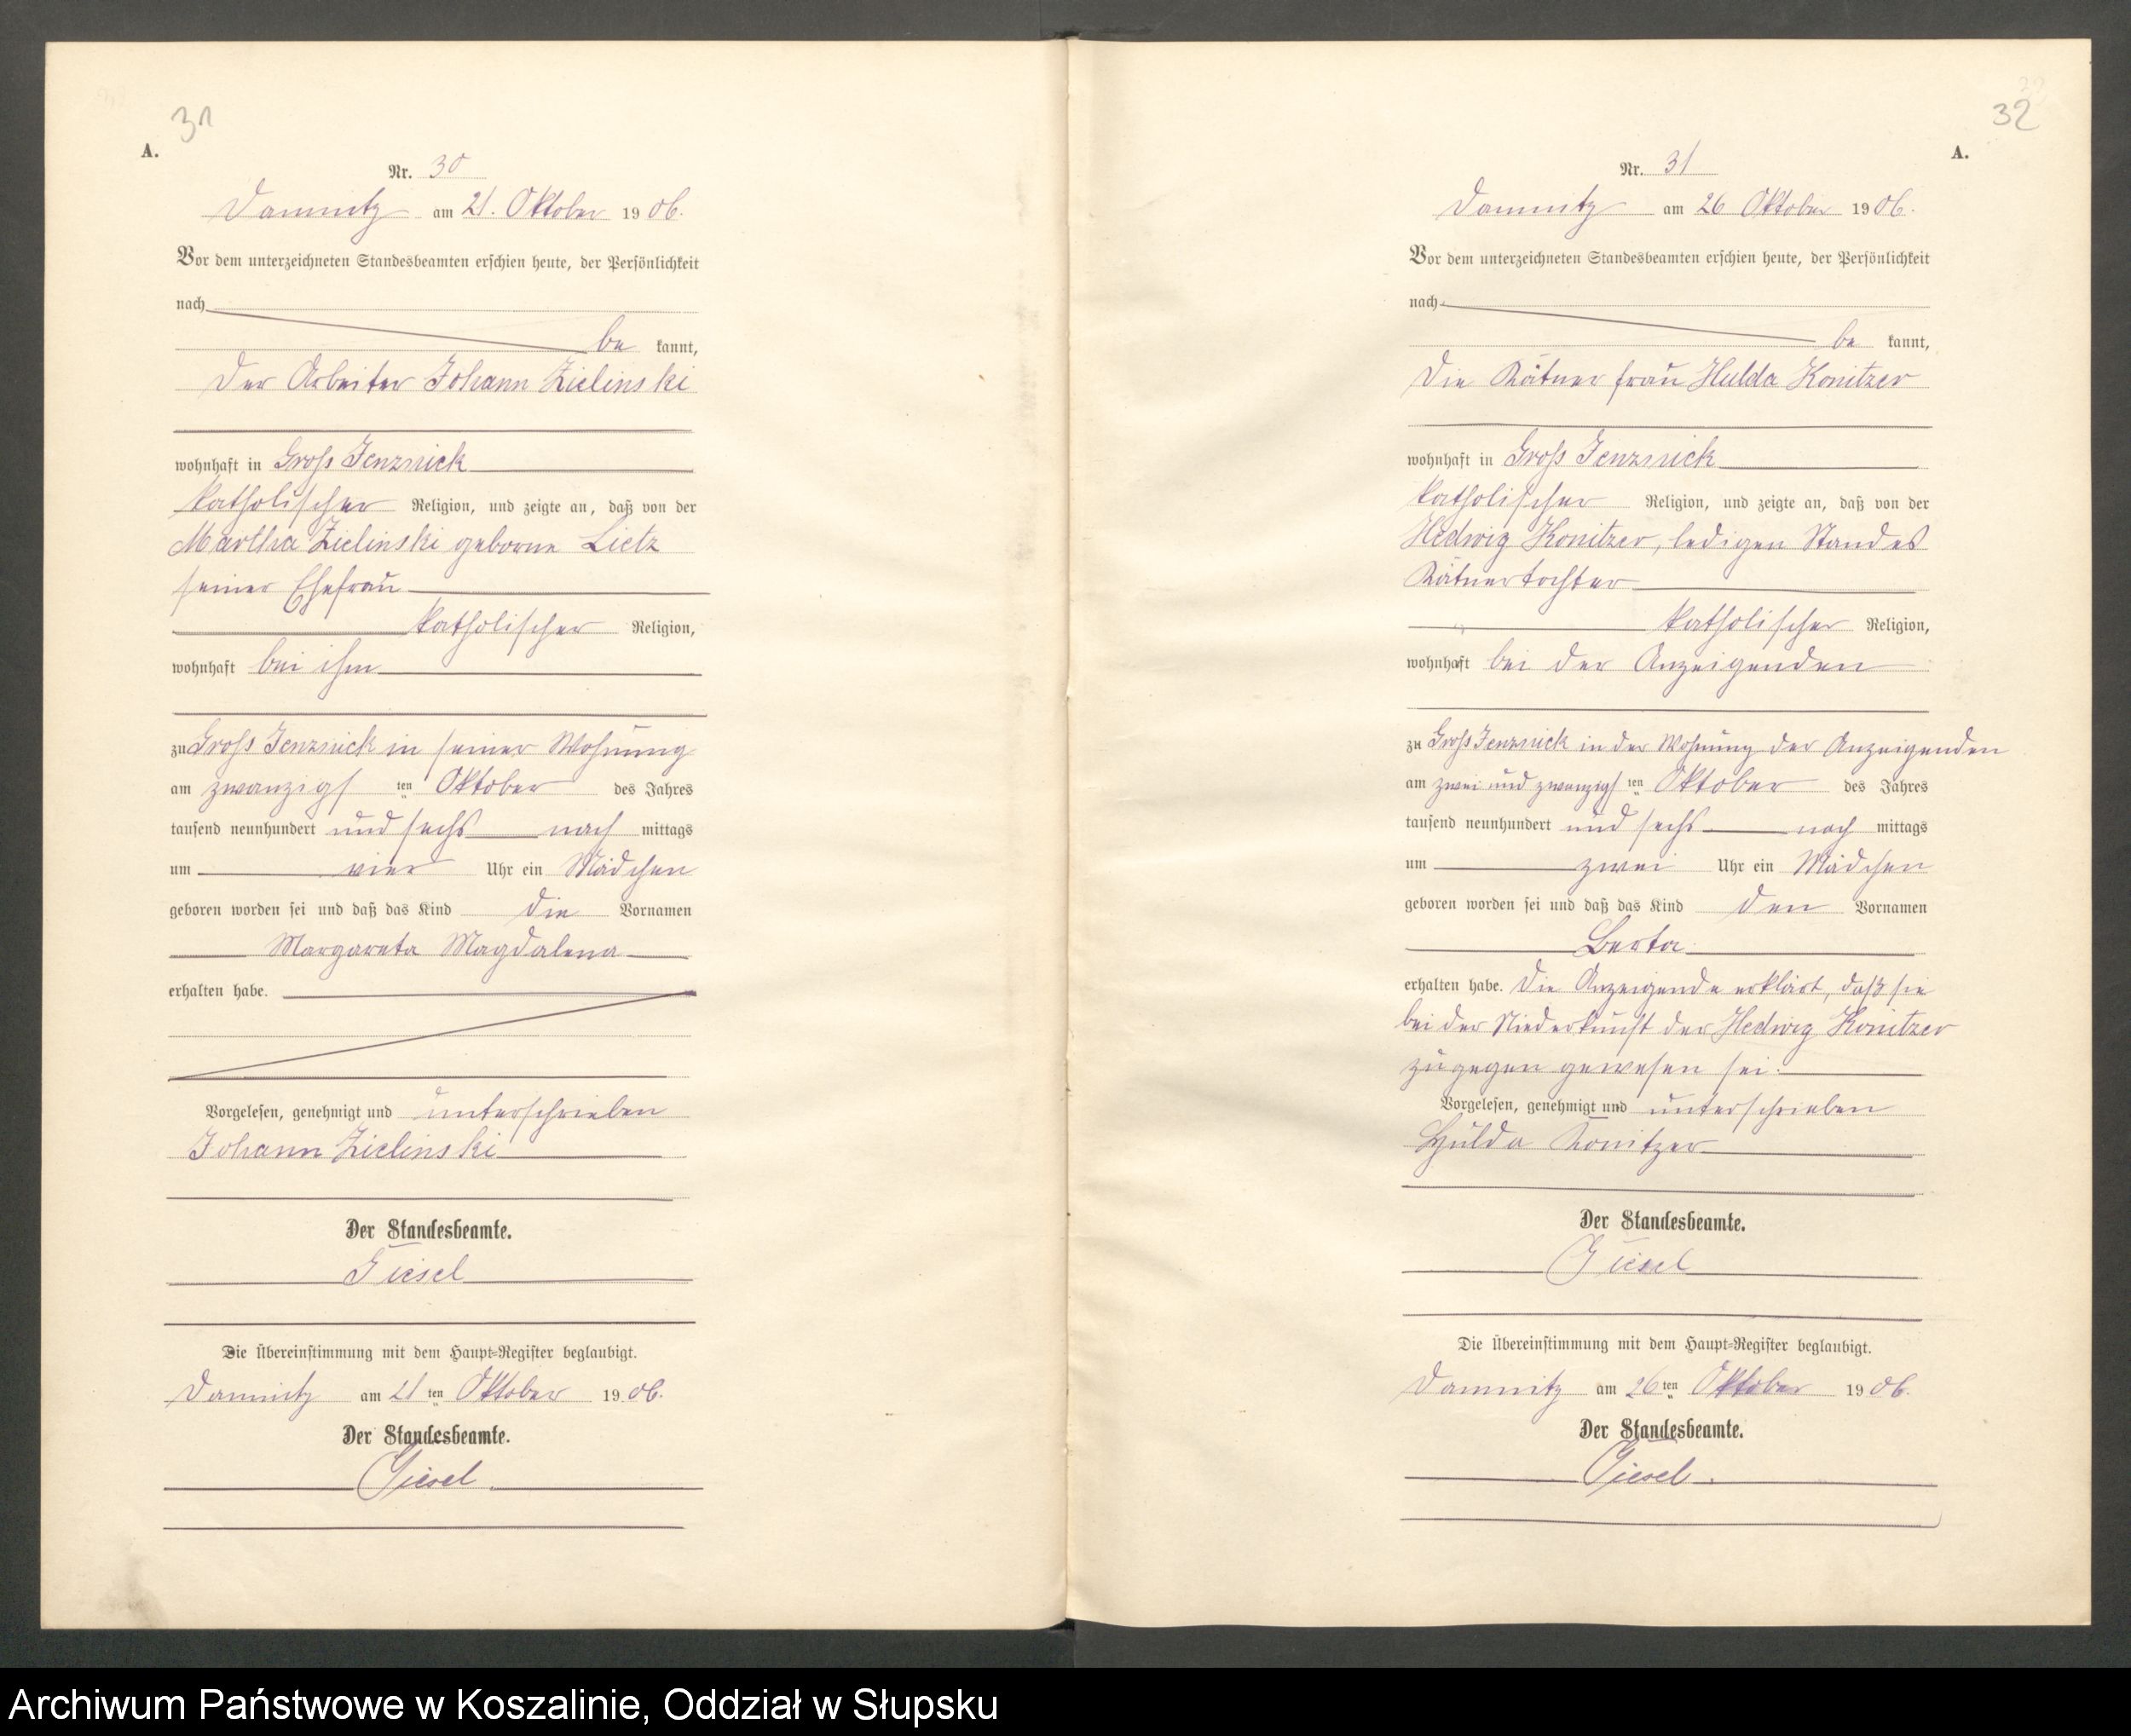 31
A.
Nr. 30
Damnitz am 21. Oktober 1906.
Vor dem unterzeichneten Standesbeamten erschien heute, der Persönlichkeit
nach
be kannt,
der Arbeiter Johann Zielinski
wohnhaft in Groß Jenznick
katholischer Religion, und zeigte an, daß von der
Martha Zielinski geborne Lietz
seiner Ehefrau
katholischer Religion,
wohnhaft bei ihm
zu Groß Jenznick in seiner Wohnung
am zwanzigsten Oktober des Jahres
tausend neunhundert und sechs nach mittags
um vier Uhr ein Mädchen
geboren worden sei und daß das Kind die Vornamen
Margareta Magdalena
erhalten habe.
Vorgelesen, genehmigt und unterschrieben
Johann Zielinski
Der Standesbeamte.
Giesel
Die Übereinstimmung mit dem Haupt-Register beglaubigt.
Damnitz am 21 ten Oktober 1906.
Der Standesbeamte.
Giesel.
32
A.
Nr. 31
Damnitz am 26 Oktober 1906.
Vor dem unterzeichneten Standesbeamten erschien heute, der Persönlichkeit
nach
be kannt,
die Kätner frau Hulda Konitzer
wohnhaft in Groß Jenznick
katholischer Religion, und zeigte an, daß von der
Hedwig Konitzer, ledigen Standes
Kätnertochter
katholischer Religion,
wohnhaft bei der Anzeigenden
zu Groß Jenznick in der Wohnung der Anzeigenden
am zwei und zwanzigsten Oktober des Jahres
tausend neunhundert und sechs nach mittags
um zwei Uhr ein Mädchen
geboren worden sei und daß das Kind den Vornamen
Berta
erhalten habe. Die Anzeigende erklärt, daß sie
bei der Niederkunft der Hedwig Konitzer
zugegen gewesen sei.
Vorgelesen, genehmigt und unterschrieben
Hulda Konitzer
Der Standesbeamte.
Giesel
Die Übereinstimmung mit dem Haupt-Register beglaubigt.
Damnitz am 26 ten Oktober 1906.
Der Standesbeamte.
Giesel.
Archiwum Państwowe w Koszalinie, Oddział w Słupsku